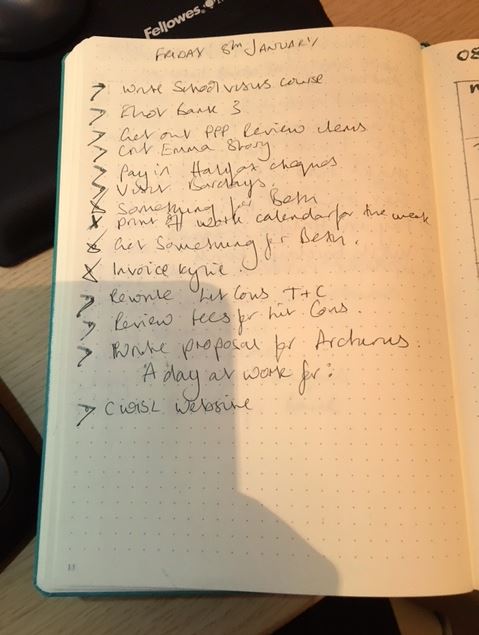 Fellowes
FRIDAY 8TH JANUARY
08
> Write School visits course
> Eliot Bank 3
> Get out PPP Review items
> Crit Emma Story
> Pay in Halifax cheques
X Visit Barclays.
X Something for Beth
X Print off work calendar for the week
X Get Something for Beth.
X Invoice Kylie.
> Rewrite Lit Cons T+C
> Review fees for Lit Cons.
> Write proposal for Archerus.
A day at work for:
> CWISL website